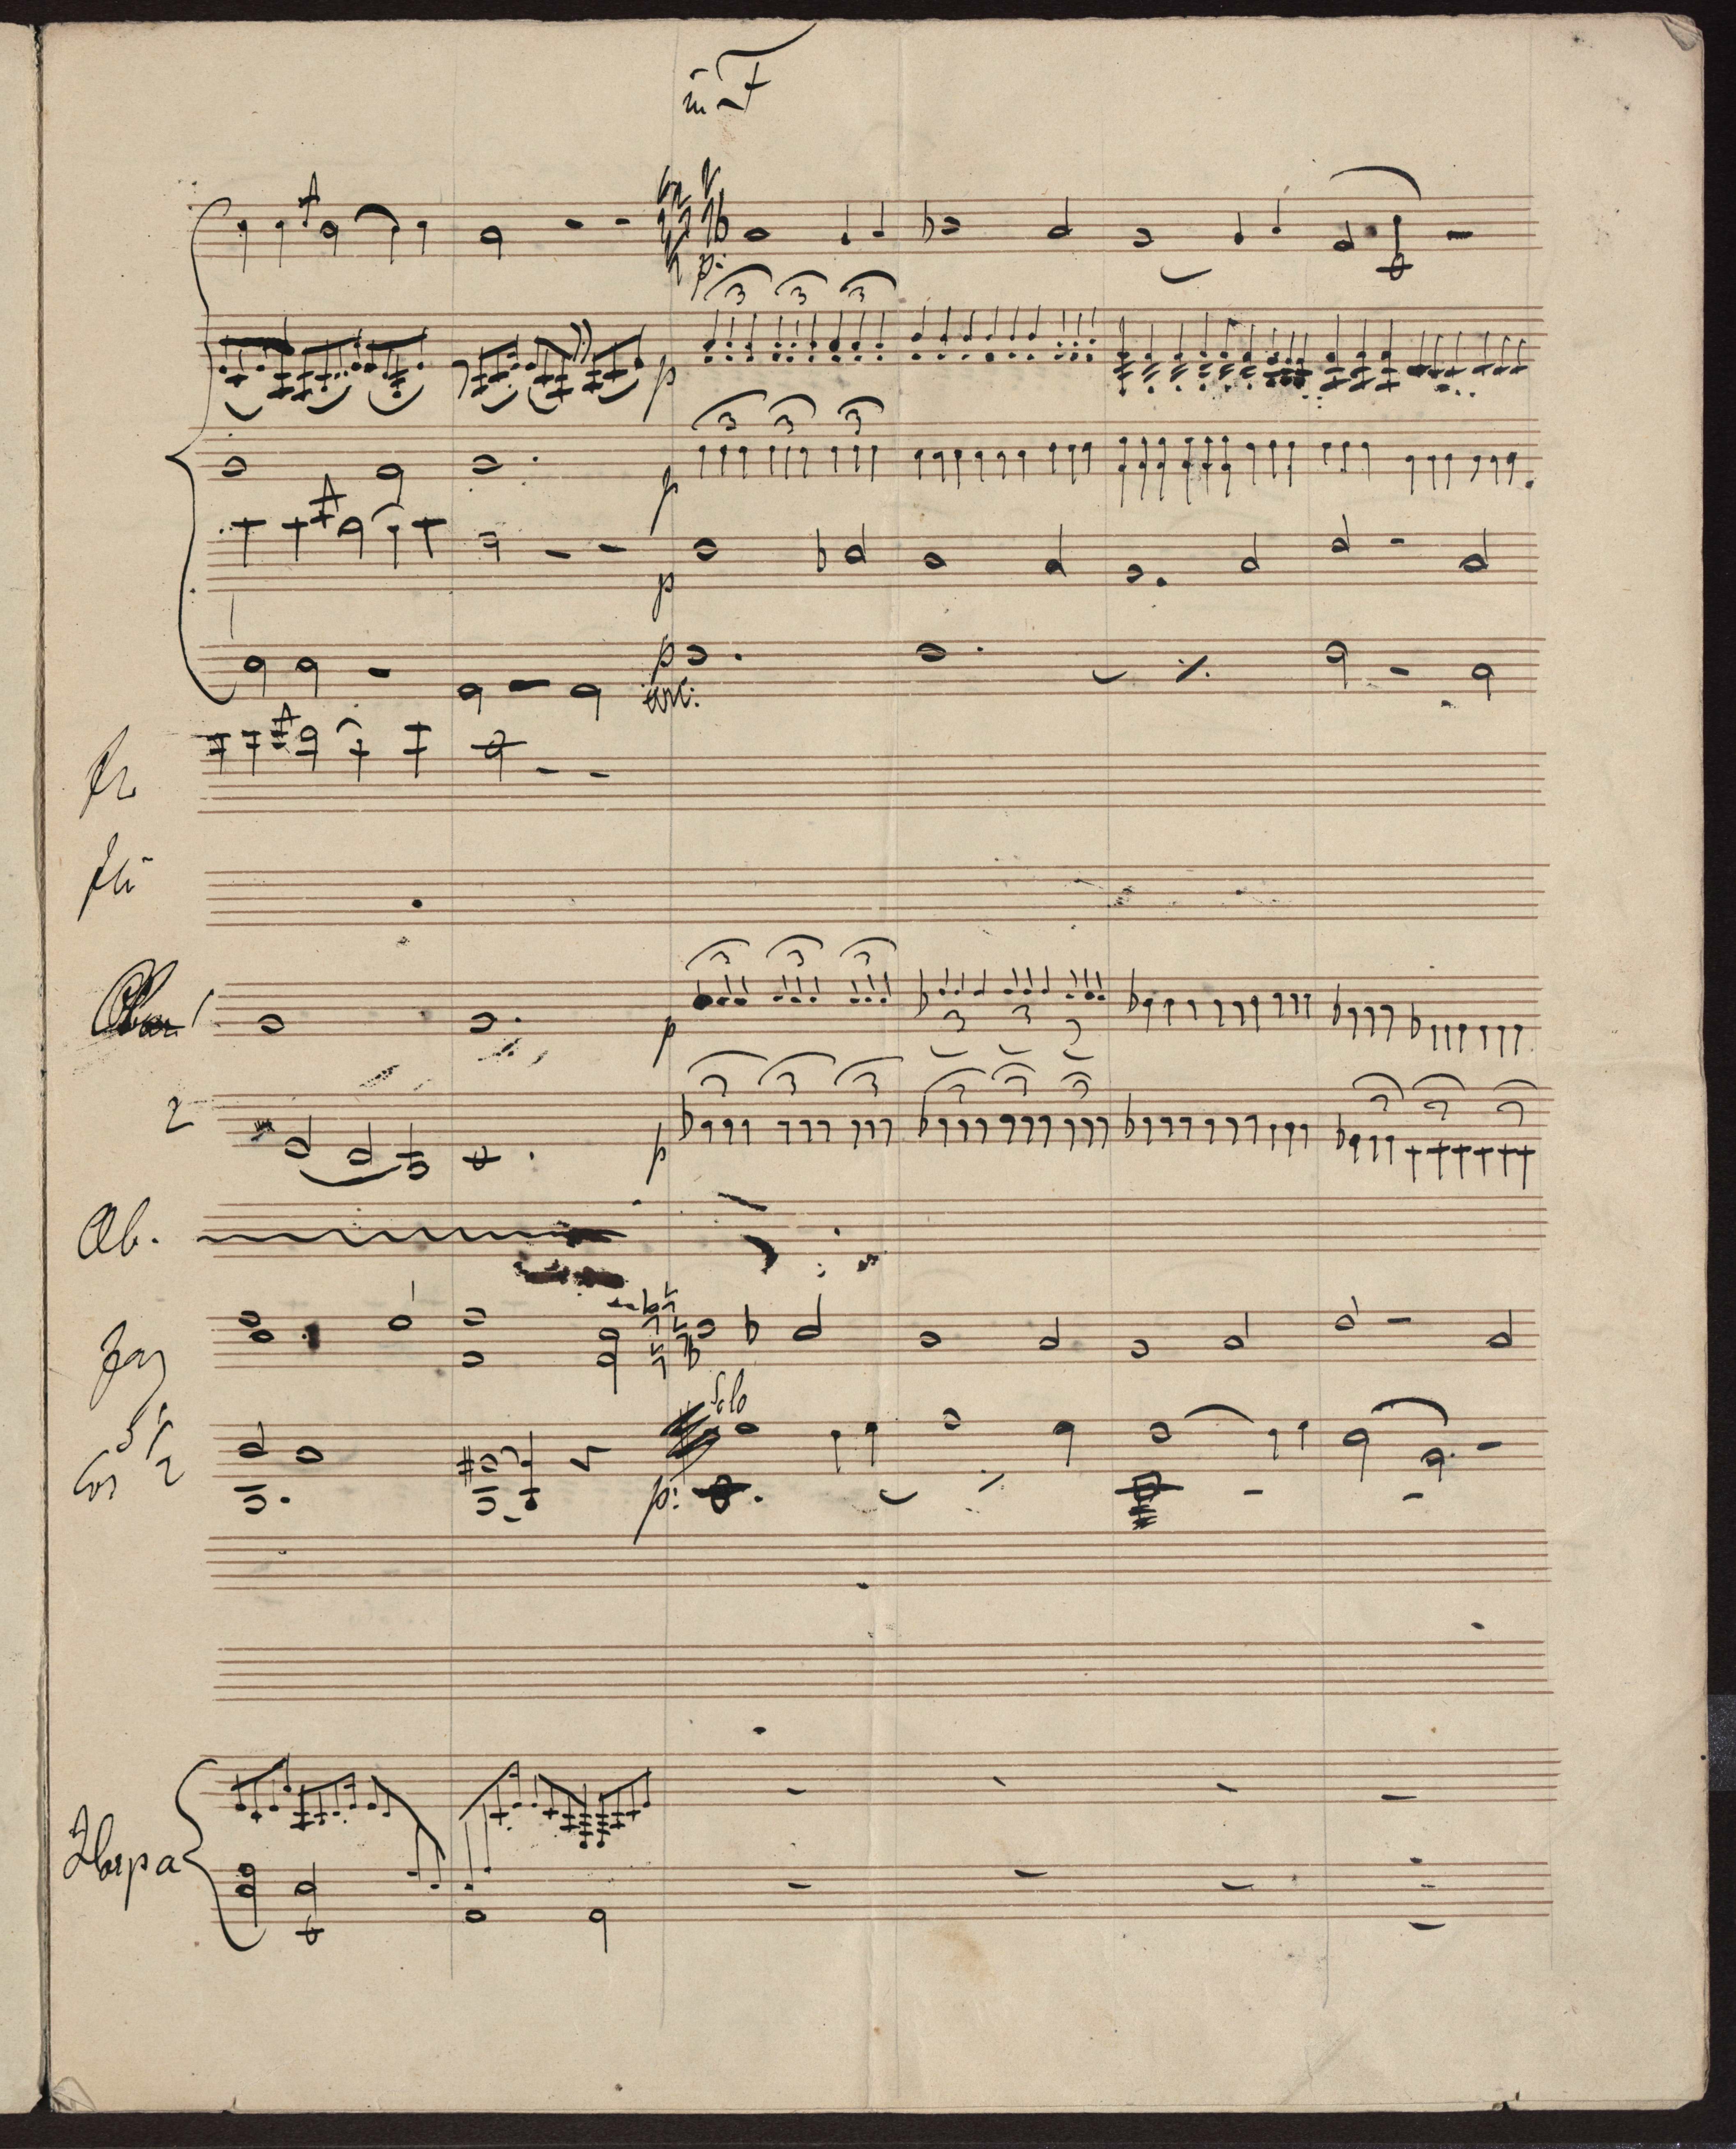 in F
p:
3 3 3
p
3 3 3
p
p
p
arc:
Fl
p
3 3 3
3 3
2
3 3 3 3 3 3
p
3 3 3
Ob.
Fag
Solo
Cor 1
2
p:
Harpa